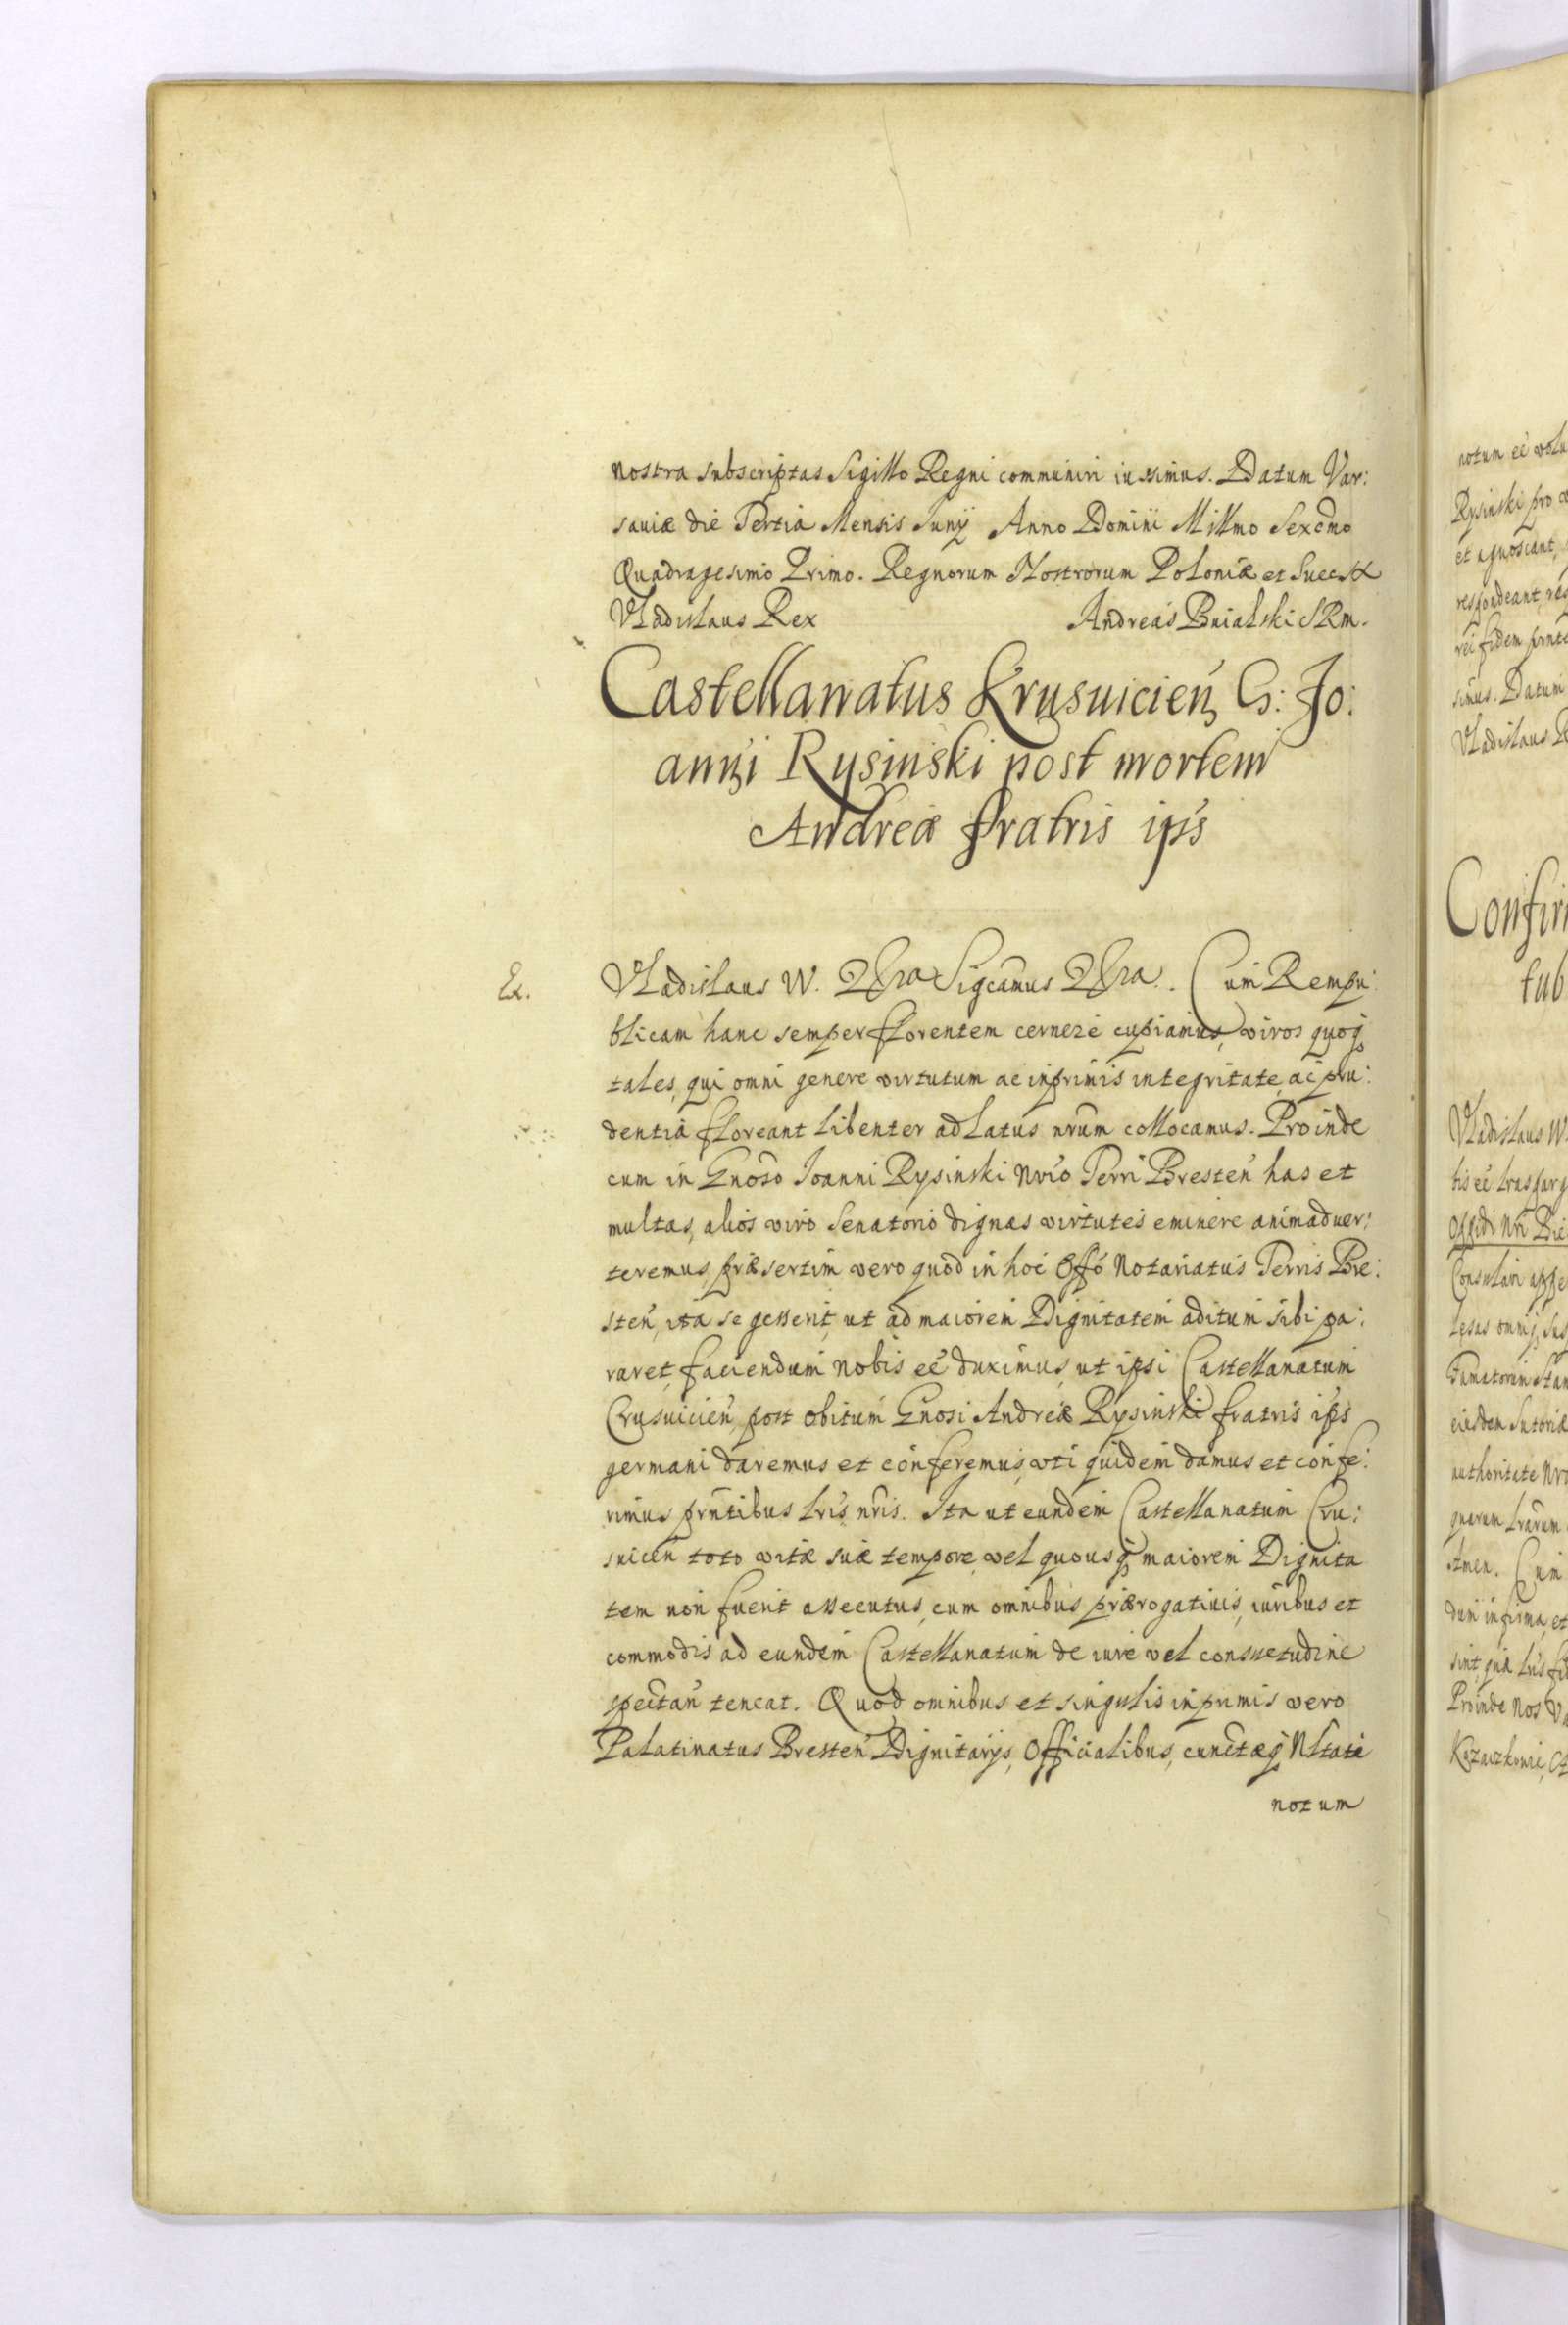 nostra subscriptas Sigillo Regni communiri iussimus. Datum Var:
saviæ die Tertia Mensis Iunij Anno Domini Millmo Sexcmo
Quadragesimo Primo. Regnorum Nostrorum Poloniæ et Suec
Vladislaus Rex Andreas Buialski SRm.
Castellanatus Krusuicien G: Jo:
anni Rysinski post mortem
Andreæ fratris ips
Ex.
Vladislaus W. Sigcamus Cum Rempu:
blicam hanc semper florentem cernere cupiamus, viros quoq
tales, qui omni genere virtutum ac inprimis integritate, ac pru:
dentia floreant libenter ad latus nrum collocamus. Proinde
cum in Gnoso Ioanni Rysinski Nrio Terri Bresten has et
multas, alios viro Senatorio dignas virtutes eminere animaduer:
teremus, præsertim vero quod in hoc Offo Notariatus Terris Bre:
sten, ita se gesserit, ut ad maiorem Dignitatem aditum sibi pa:
raret, faciendum nobis eé duximus, ut ipsi Castellanatum
Crusuicien, post obitum Gnosi Andreæ Rysinski fratris ips
germani daremus et conferemus, uti quidem damus et confe:
rimus prntibus lris nris. Ita ut eundem Castellanatum Cru:
suicen toto vitæ suæ tempore, vel quousq maiorem Dignita
tem non fuerit assecutus, cum omnibus prærogativis, iuribus et
commodis ad eundem Castellanatum de iure vel consuetudine
spectan teneat. Quod omnibus et singulis inprimis vero
Palatinatus Bresten Dignitarijs, Officialibus, cunctæq Nltati
notum
notum eé
Rysinski pro
et agnoscant,
respondeant,
rei fidem
simus. Datum
Vladislaus
Confir
tub
Vladislaus W
Consulari
authoritate
quarum lrarum
Amen. Cum
dum infirma, et
Proinde Nos